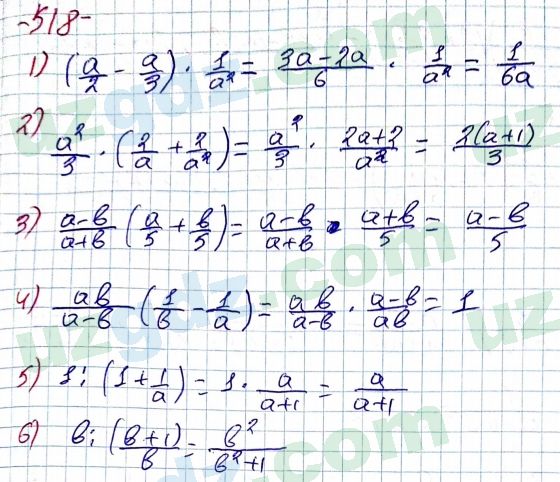 -518-
1) (a/2 - a/3) · 1/a² = (3a-2a)/6 · 1/a² = 1/6a
2) a²/3 · (2/a + 2/a²) = a²/3 · (2a+2)/a² = 2(a+1)/3
3) (a-в)/(a+в) (a/5 + в/5) = (a-в)/(a+в) · (a+в)/5 = (a-в)/5
4) aв/(a-в) (1/в - 1/a) = aв/(a-в) · (a-в)/aв = 1
5) 1 : (1 + 1/a) = 1 · a/(a+1) = a/(a+1)
6) в : ((в+1)/в) = в²/(в²+1)
uzgdz.com